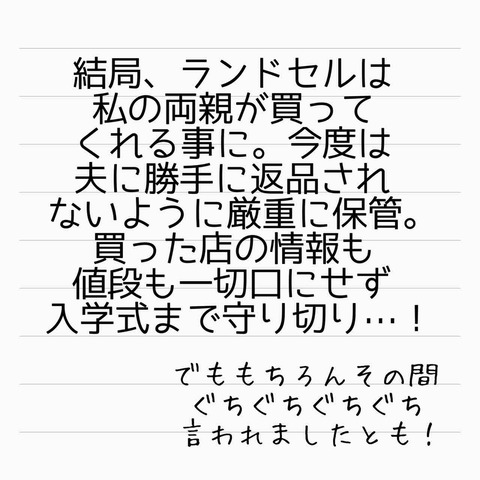 結局、ランドセルは
私の両親が買って
くれる事に。今度は
夫に勝手に返品され
ないように厳重に保管。
買った店の情報も
値段も一切口にせず
入学式まで守り切り…！
でももちろんその間
ぐちぐちぐちぐち
言われましたとも！